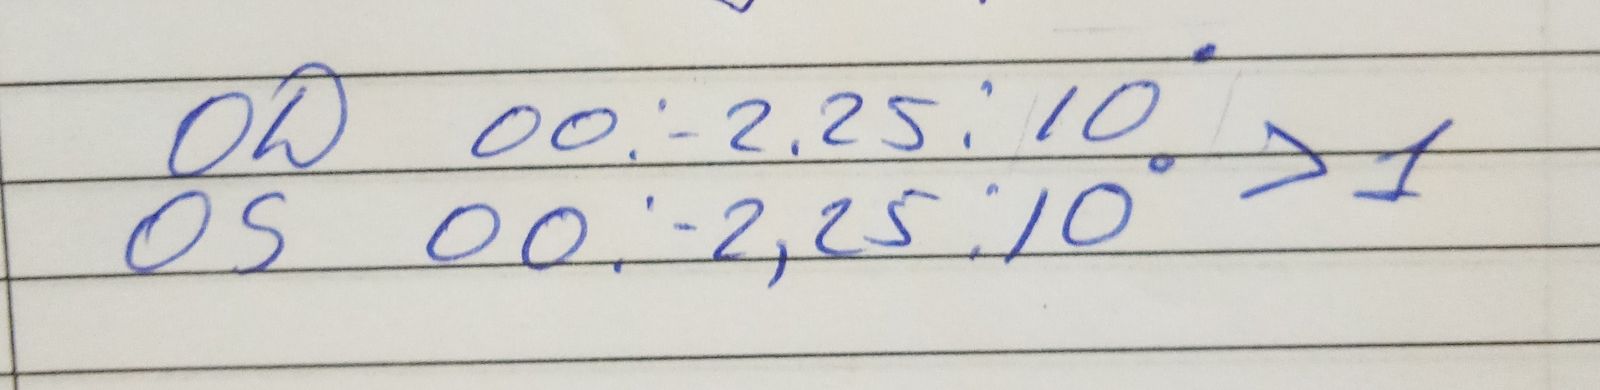 OD 00:-2.25:10° > 1
OS 00:-2,25:10°